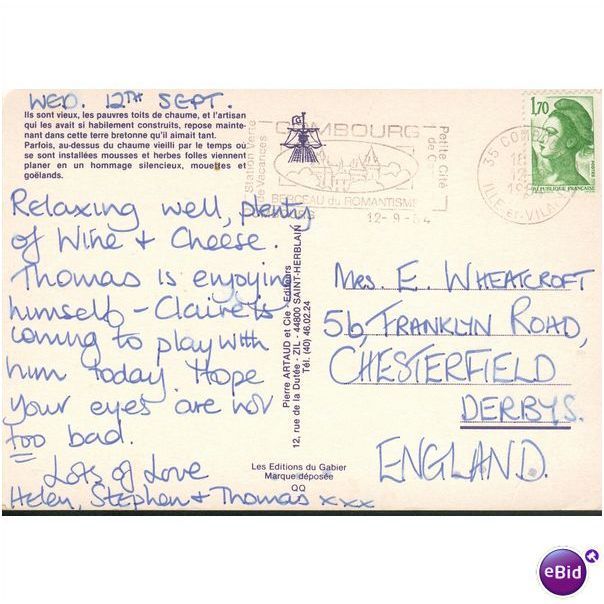 WED. 12TH SEPT.
Ils sont vieux, les pauvres toits de chaume, et l'artisan
qui les avait si habilement construits, repose mainte-
nant dans cette terre bretonne qu'il aimait tant.
Parfois, au-dessus du chaume vieilli par le temps où
se sont installées mousses et herbes folles viennent
planer en un hommage silencieux, mouettes et
goëlands.
Relaxing well, plenty
of Wine + Cheese.
Thomas is enjoying
himself - Claire is
coming to play with
him today. Hope
your eyes are not
too bad.
Lots of Love
Helen, Stephen + Thomas xxx
Pierre ARTAUD et Cie - Editeurs
12, rue de la Dutée - ZIL - 44800 SAINT-HERBLAIN
Tél. (40) 46.02.24
Les Editions du Gabier
Marque déposée
QQ
Station Verte
de Vacances
COMBOURG
BERCEAU du ROMANTISME
Petite Cité
de C
12-9-84
35 COMB
ILLE-et-VILAINE
1,70
POSTES
REPUBLIQUE FRANCAISE
MRS. E. WHEATCROFT
56, FRANKLYN ROAD,
CHESTERFIELD
DERBYS.
ENGLAND.
eBid